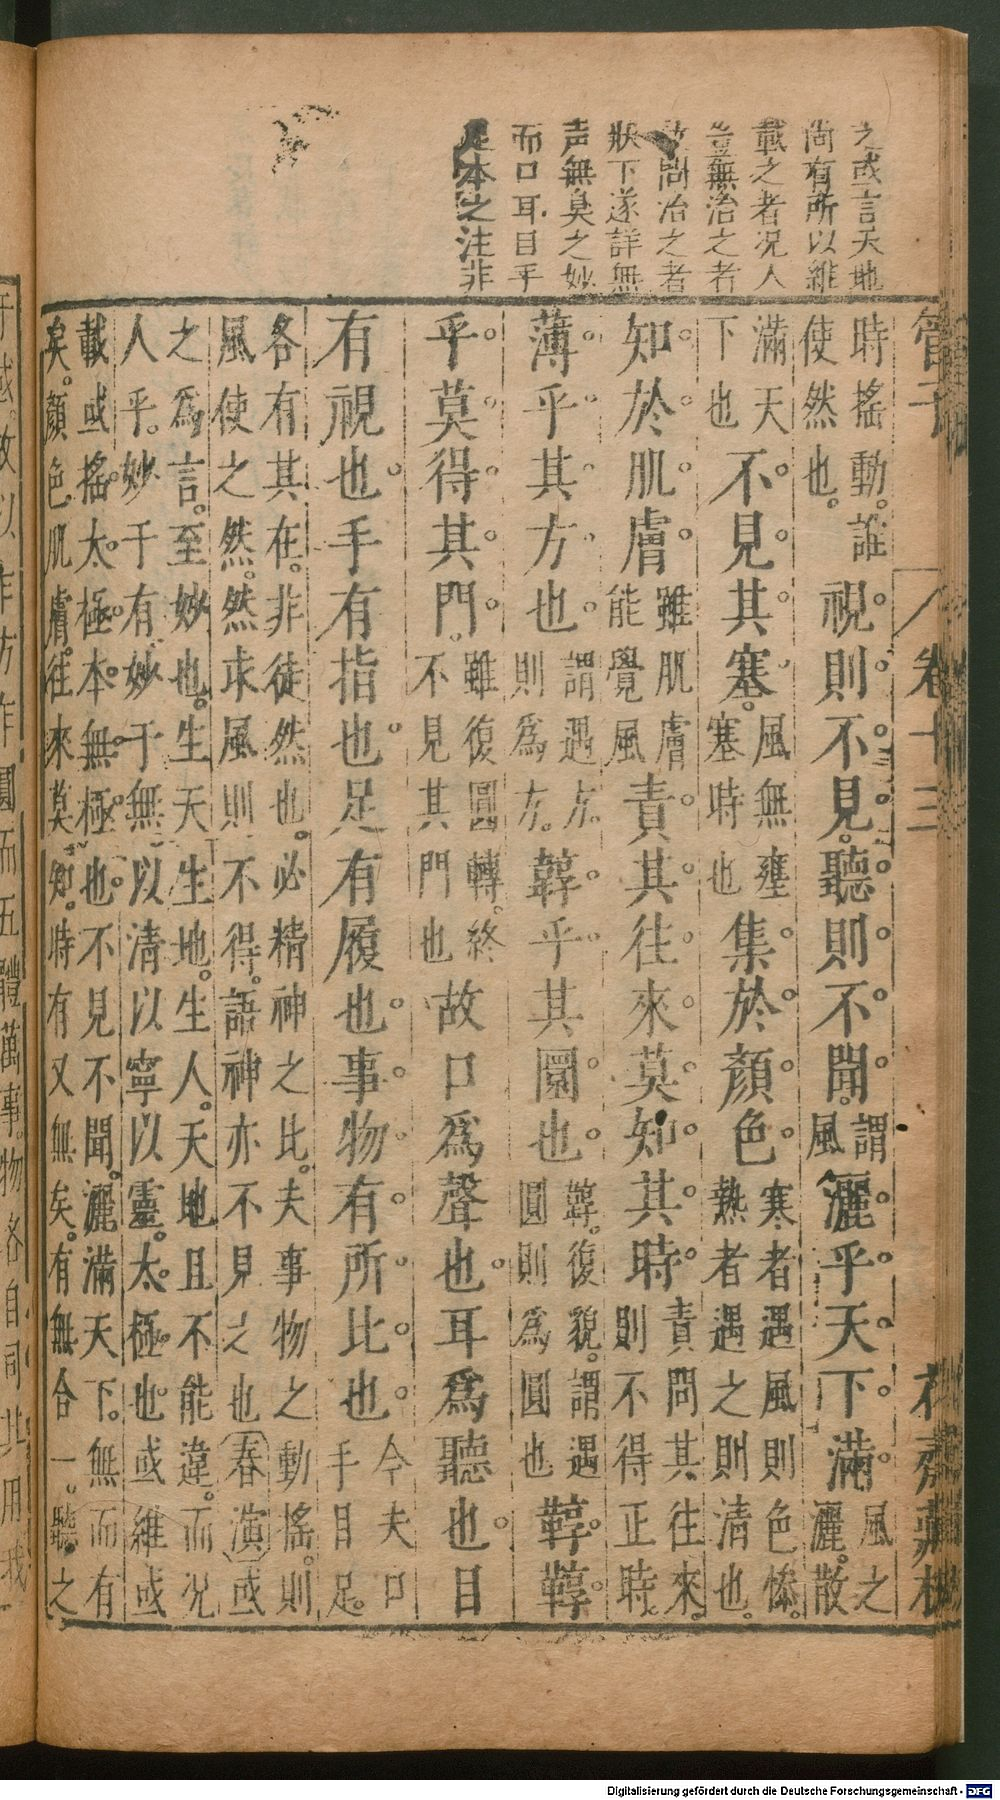 之或言天地
尚有所以維
載之者况人
豈無治之者
故問治之者
狀下遂詳無
声無臭之妙
而口耳目手
足本之注非
管子
卷十三
花齋藏板
時搖動。誰
使然也。
視則不見。聽則不聞。
謂
風
灑乎天下滿。
風之
灑散
滿天
下也
不見其塞。
風無壅
塞時也
集於顏色。
寒者遇風則色慘。
熱者遇之則清也。
知於肌膚。
雖肌膚
能覺風
責其往來。莫知其時。
責問其往來。
則不得正時。
薄乎其方也。
謂遇方。
則爲方。
韕乎其圜也。
韕。復貌。謂遇
圓則爲圓也
韕韕
乎莫得其門。
雖復圓轉。終
不見其門也
故口爲聲也。耳爲聽也。目
有視也。手有指也。足有履也。事物有所比也。
今夫口
手目足。
各有其在。非徒然也。必精神之比。夫事物之動搖。則
風使之然。然求風則不得。語神亦不見之也 春演 或
之爲言。至妙也。生天生地。生人。天地且不能違。而况
人乎。妙于有妙于無以清以寧以靈。太極也。或維或
載或搖。太極本無極也。不見不聞。灑滿天下。無而有
矣。顏色肌膚。往來莫知。時有又無矣。有無合一。聽之
Digitalisierung gefördert durch die Deutsche Forschungsgemeinschaft - DFG